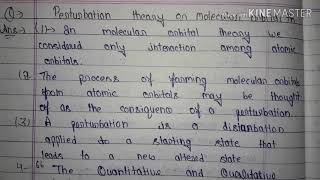 KINEMASTER
Q→ Perturbation theory on molecular orbital
Ans→ (1)→ In molecular orbital theory we
considered only interaction among atomic
orbitals.
(2 The process of forming molecular orbitals
from atomic orbitals may be thought
of as the consequence of a perturbation.
(3) A perturbation is a distarbation
applied to a starting state that
leads to a new altered state
4- "The Quantitative and Qualitative